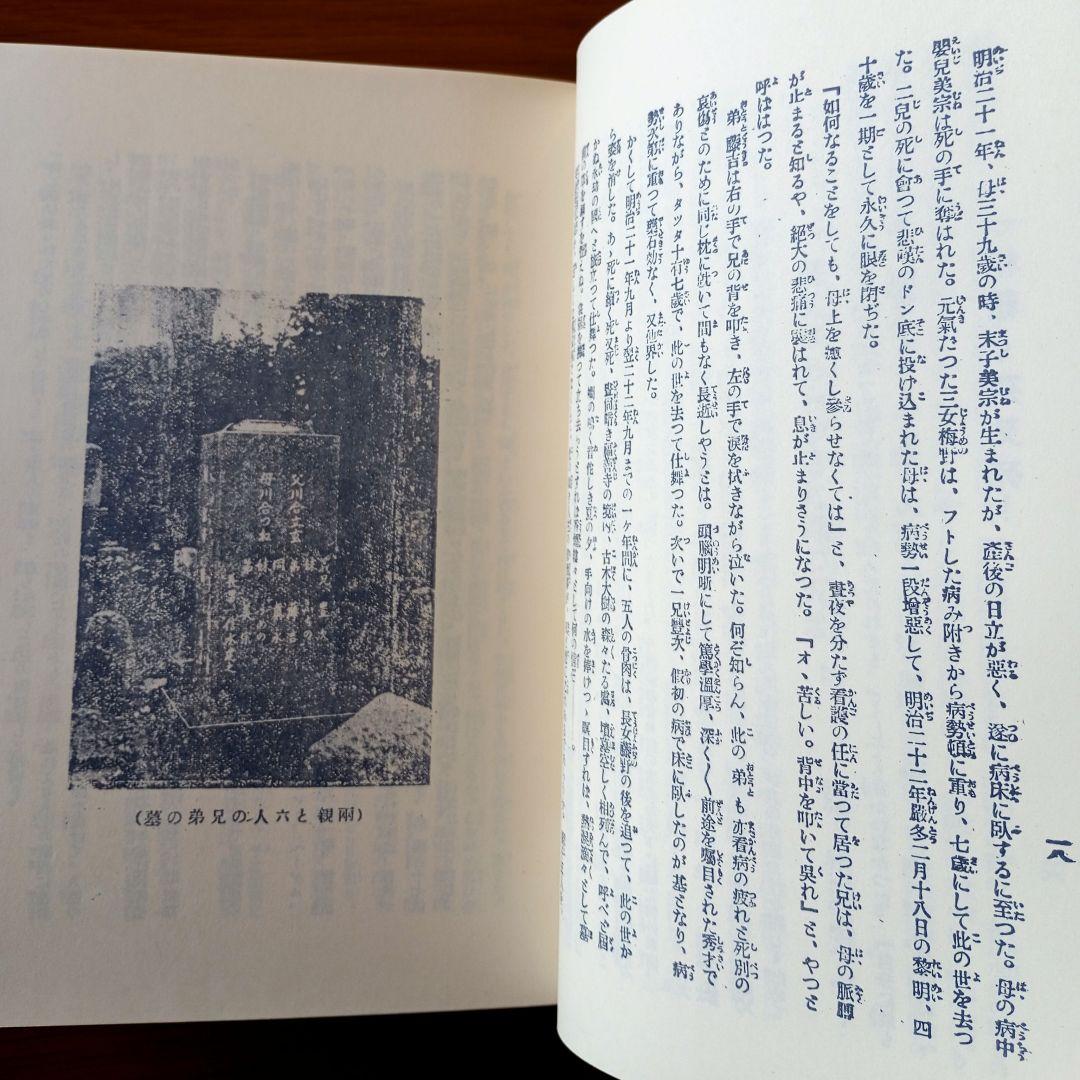 一八
明治二十一年、母三十九歳の時、末子美宗が生まれたが、產後の日立が惡く、遂に病床に臥するに至つた。母の病中
嬰兒美宗は死の手に奪はれた。元氣だつた三女梅野は、フトした病み附きから病勢頓に重り、七歳にして此の世を去つ
た。二兒の死に會つて悲嘆のドン底に投け込まれた母は、病勢一段增惡して、明治二十二年嚴冬二月十八日の黎明、四
十歳を一期として永久に眼を閉ぢた。
『如何なることをしても、母上を癒くし參らせなくては』と、晝夜を分たず看護の任に當つて居つた兄は、母の脈膊
が止まると知るや、絕大の悲痛に襲はれて、息が止まりさうになつた。『オ、苦しい。背中を叩いて吳れ』と、やつと
呼ばはつた。
弟藤吉は右の手で兄の背を叩き、左の手で淚を拭きながら泣いた。何ぞ知らん、此の弟も亦看病の疲れと死別の
哀傷とのために同じ枕に就いて間もなく長逝しやうとは。頭腦明晰にして篤學溫厚、深く〱前途を囑目された秀才で
ありながら、タッタ十有七歳で、此の世を去つて仕舞つた。次いで一兄豐次、假初の病で床に臥したのが基となり、病
勢次第に重つて藥石効なく、又他界した。
かくして明治二十一年九月より翌二十二年九月までの一ケ年間に、五人の骨肉は、長女藤野の後を追つて、此の世か
ら姿を消した。あゝ死に續く死又死、
古木大樹の森々たる處、墳墓空しく相列んで、呼べど届
かぬ永劫の闇へと旅立つて仕舞つた。
手向けの水を捧けつゝ瞑目すれば、熱淚滴々として墓
父川合
母川合つね
(兩親と六人の兄弟の墓)